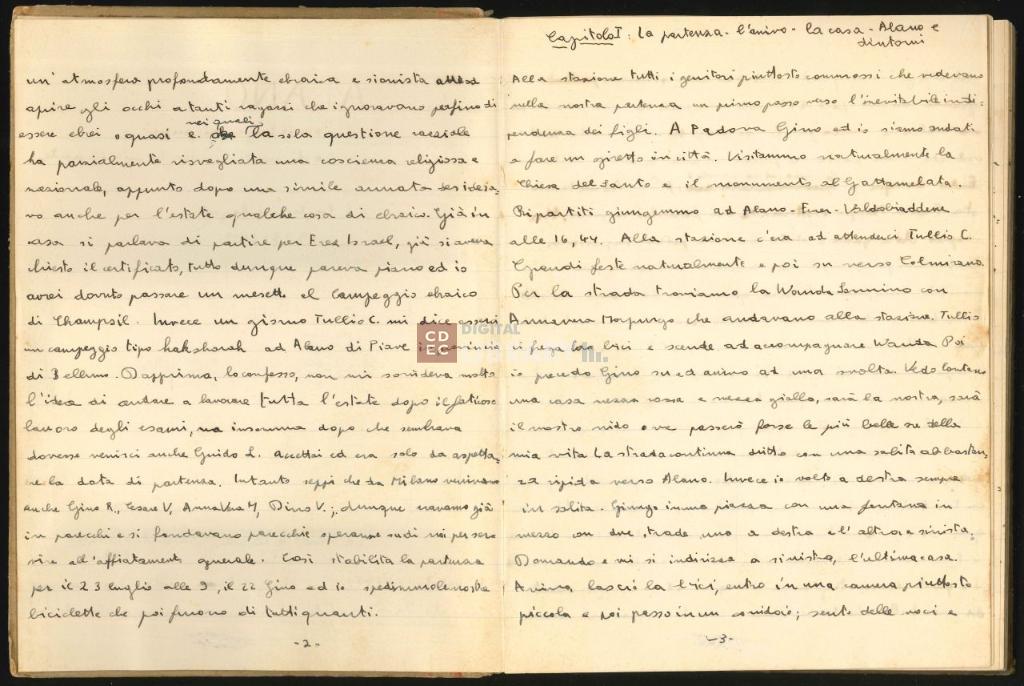 un'atmosfera profondamente ebraica e sionista
aprire gli occhi a tanti ragazzi che ignoravano perfino di
essere ebrei o quasi e nei quali la sola questione razziale
ha parzialmente risvegliata una coscienza religiosa e
nazionale, appunto dopo una simile annata desidera-
vo anche per l'estate qualche cosa di ebraico. Già in
casa si parlava di partire per Erez Israel, già si aveva
chiesto il certificato, tutto dunque pareva piano ed io
avrei dovuto passare un mesetto al Campeggio ebraico
di Champsil. Invece un giorno Tullio C. mi dice esserci
un campeggio tipo hakshorah ad Alano di Piave in provincia
di Belluno. Dapprima, lo confesso, non mi sorrideva molto
l'idea di andare a lavorare tutta l'estate dopo il faticoso
lavoro degli esami, ma insomma dopo che sembrava
dovesse venirci anche Guido L. accettai ed era solo da aspetta-
re la data di partenza. Intanto seppi che da Milano venivano
anche Gino R., Cesare V, Anna M, Dino V.; dunque eravamo già
in parecchi e si fondavano parecchie speranze su di noi
e all'affiatamento generale. Così stabilita la partenza
per il 23 luglio alle 9, il 22 Gino ed io spedimmo le nostre
biciclette che poi furono di tutti quanti.
-2-
Capitolo I: La partenza - l'arrivo - la casa - Alano e
dintorni
Alla stazione tutti i genitori piuttosto commossi che vedevano
nella nostra partenza un primo passo verso l'inevitabile indi-
pendenza dei figli. A Padova Gino ed io siamo andati
a fare un giretto in città. Visitammo naturalmente la
Chiesa del Santo e il monumento al Gattamelata.
Ripartiti giungemmo ad Alano-Fener-Valdobiaddene
alle 16,44. Alla stazione c'era ad attenderci Tullio C.
Grandi feste naturalmente e poi su verso Colmirano.
Per la strada troviamo la Wanda Sennino con
Annamia Morpurgo che andavano alla stazione. Tullio
si ferma con bici e scende ad accompagnare Wanda. Poi
io precedo Gino su ed arrivo ad una svolta. Vedo lontano
una casa mezza rossa e mezza gialla, sarà la nostra, sarà
il nostro nido ove passerò forse le più belle ore della
mia vita. La strada continua dritto con una salita abbastan-
za ripida verso Alano. Invece io volto a destra sempre
in salita. Giungo in una piazza con una fontana in
mezzo con due strade una a destra e l'altra a sinistra.
Domando e mi si indirizza a sinistra, l'ultima casa.
Arrivo, lascio la bici, entro in una camera piuttosto
piccola e poi passo in un corridoio; sento delle voci e
-3-
CDEC
DIGITAL